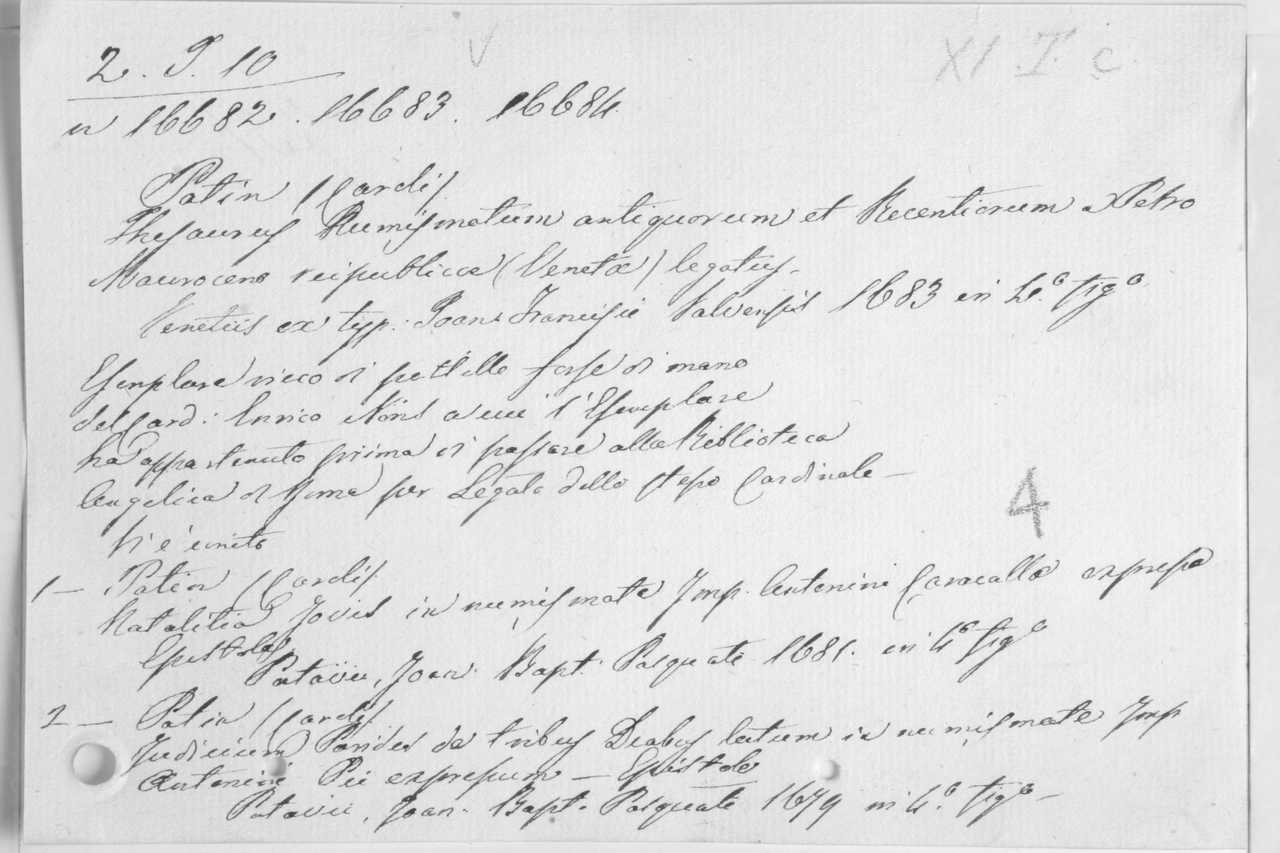 2. P. 10
XI. T. c.
n 16682. 16683. 16684
Patin (Carolis)
Thesaurus Numismatum antiquorum et Recentiorum a Petro
Mauroceno reipublicae (Venetae) legatus.
Venetiis ex typ. Joan. Francisci Valvensis 1683 in 4.o fig.o
Esemplare ricco di postille forse di mano
del Card. Enrico Noris a cui l'Esemplare
ha appartenuto prima di passare alla Biblioteca
Angelica di Roma per Legato dello stesso Cardinale —
4
Vi è unito
1 — Patin (Carolis)
Natalitia Jovis in numismate Imp. Antonini Caracallae expressa
Epistola
Patavii, Joan. Bapt. Pasquati 1681. in 4o figo
2 — Patin (Carolis)
Judicium Paridis de tribus Deabus latum in numismate Imp
Antonini Pii expressum — Epistola
Patavii, Joan. Bapt. Pasquati 1679 in 4.o figo —